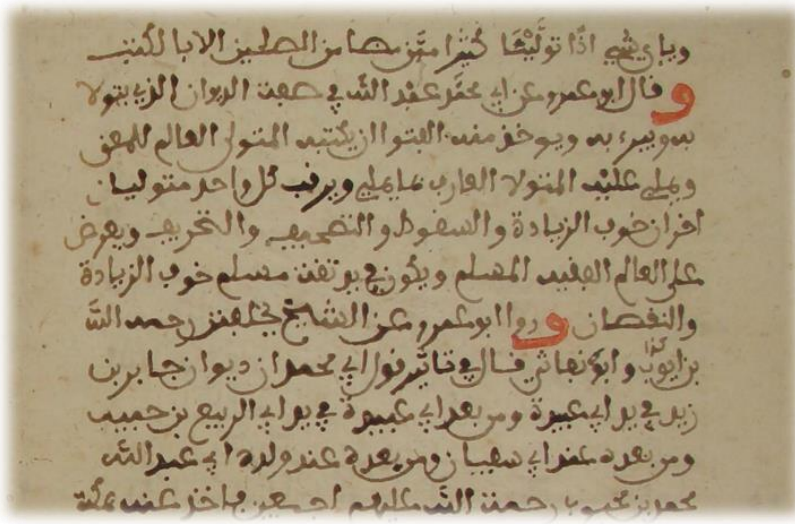 وباي شي اذا توليتها كثيرا ممن مضا من الصلحين الا بالكتب
وقال ابو عمرو عن ابي محمد عبد الله في صفت الديوان الذي يتولا
به ويبرء به ويوخذ منه الفتوا ان يكتبه المتولى العالم للمعنى
ويملي عليه المتولا العارف بما يملي ويرقب كل واحد متوليان
اخران خوف الزيادة والسقوط والتصحيف والتحريف ويعرض
على العالم الفقيه المسلم ويكون في يد ثقت مسلم خوف الزيادة
والنقصان وروا ابو عمرو عن الشيخ يخلفتن رحمه الله
بن ايوب وابو قال في تاثير قول ابي محمد ان ديوان جابر بن
زيد في يد ابي عبيدة ومن بعد ابي عبيدة في يد ابي الربيع بن حبيب
ومن بعده عند ابي سفيان ومن بعده عند ولده ابي عبد الله
محمد بن محبوب رحمت الله عليهم اجمعين فاخذ عنه بمكة